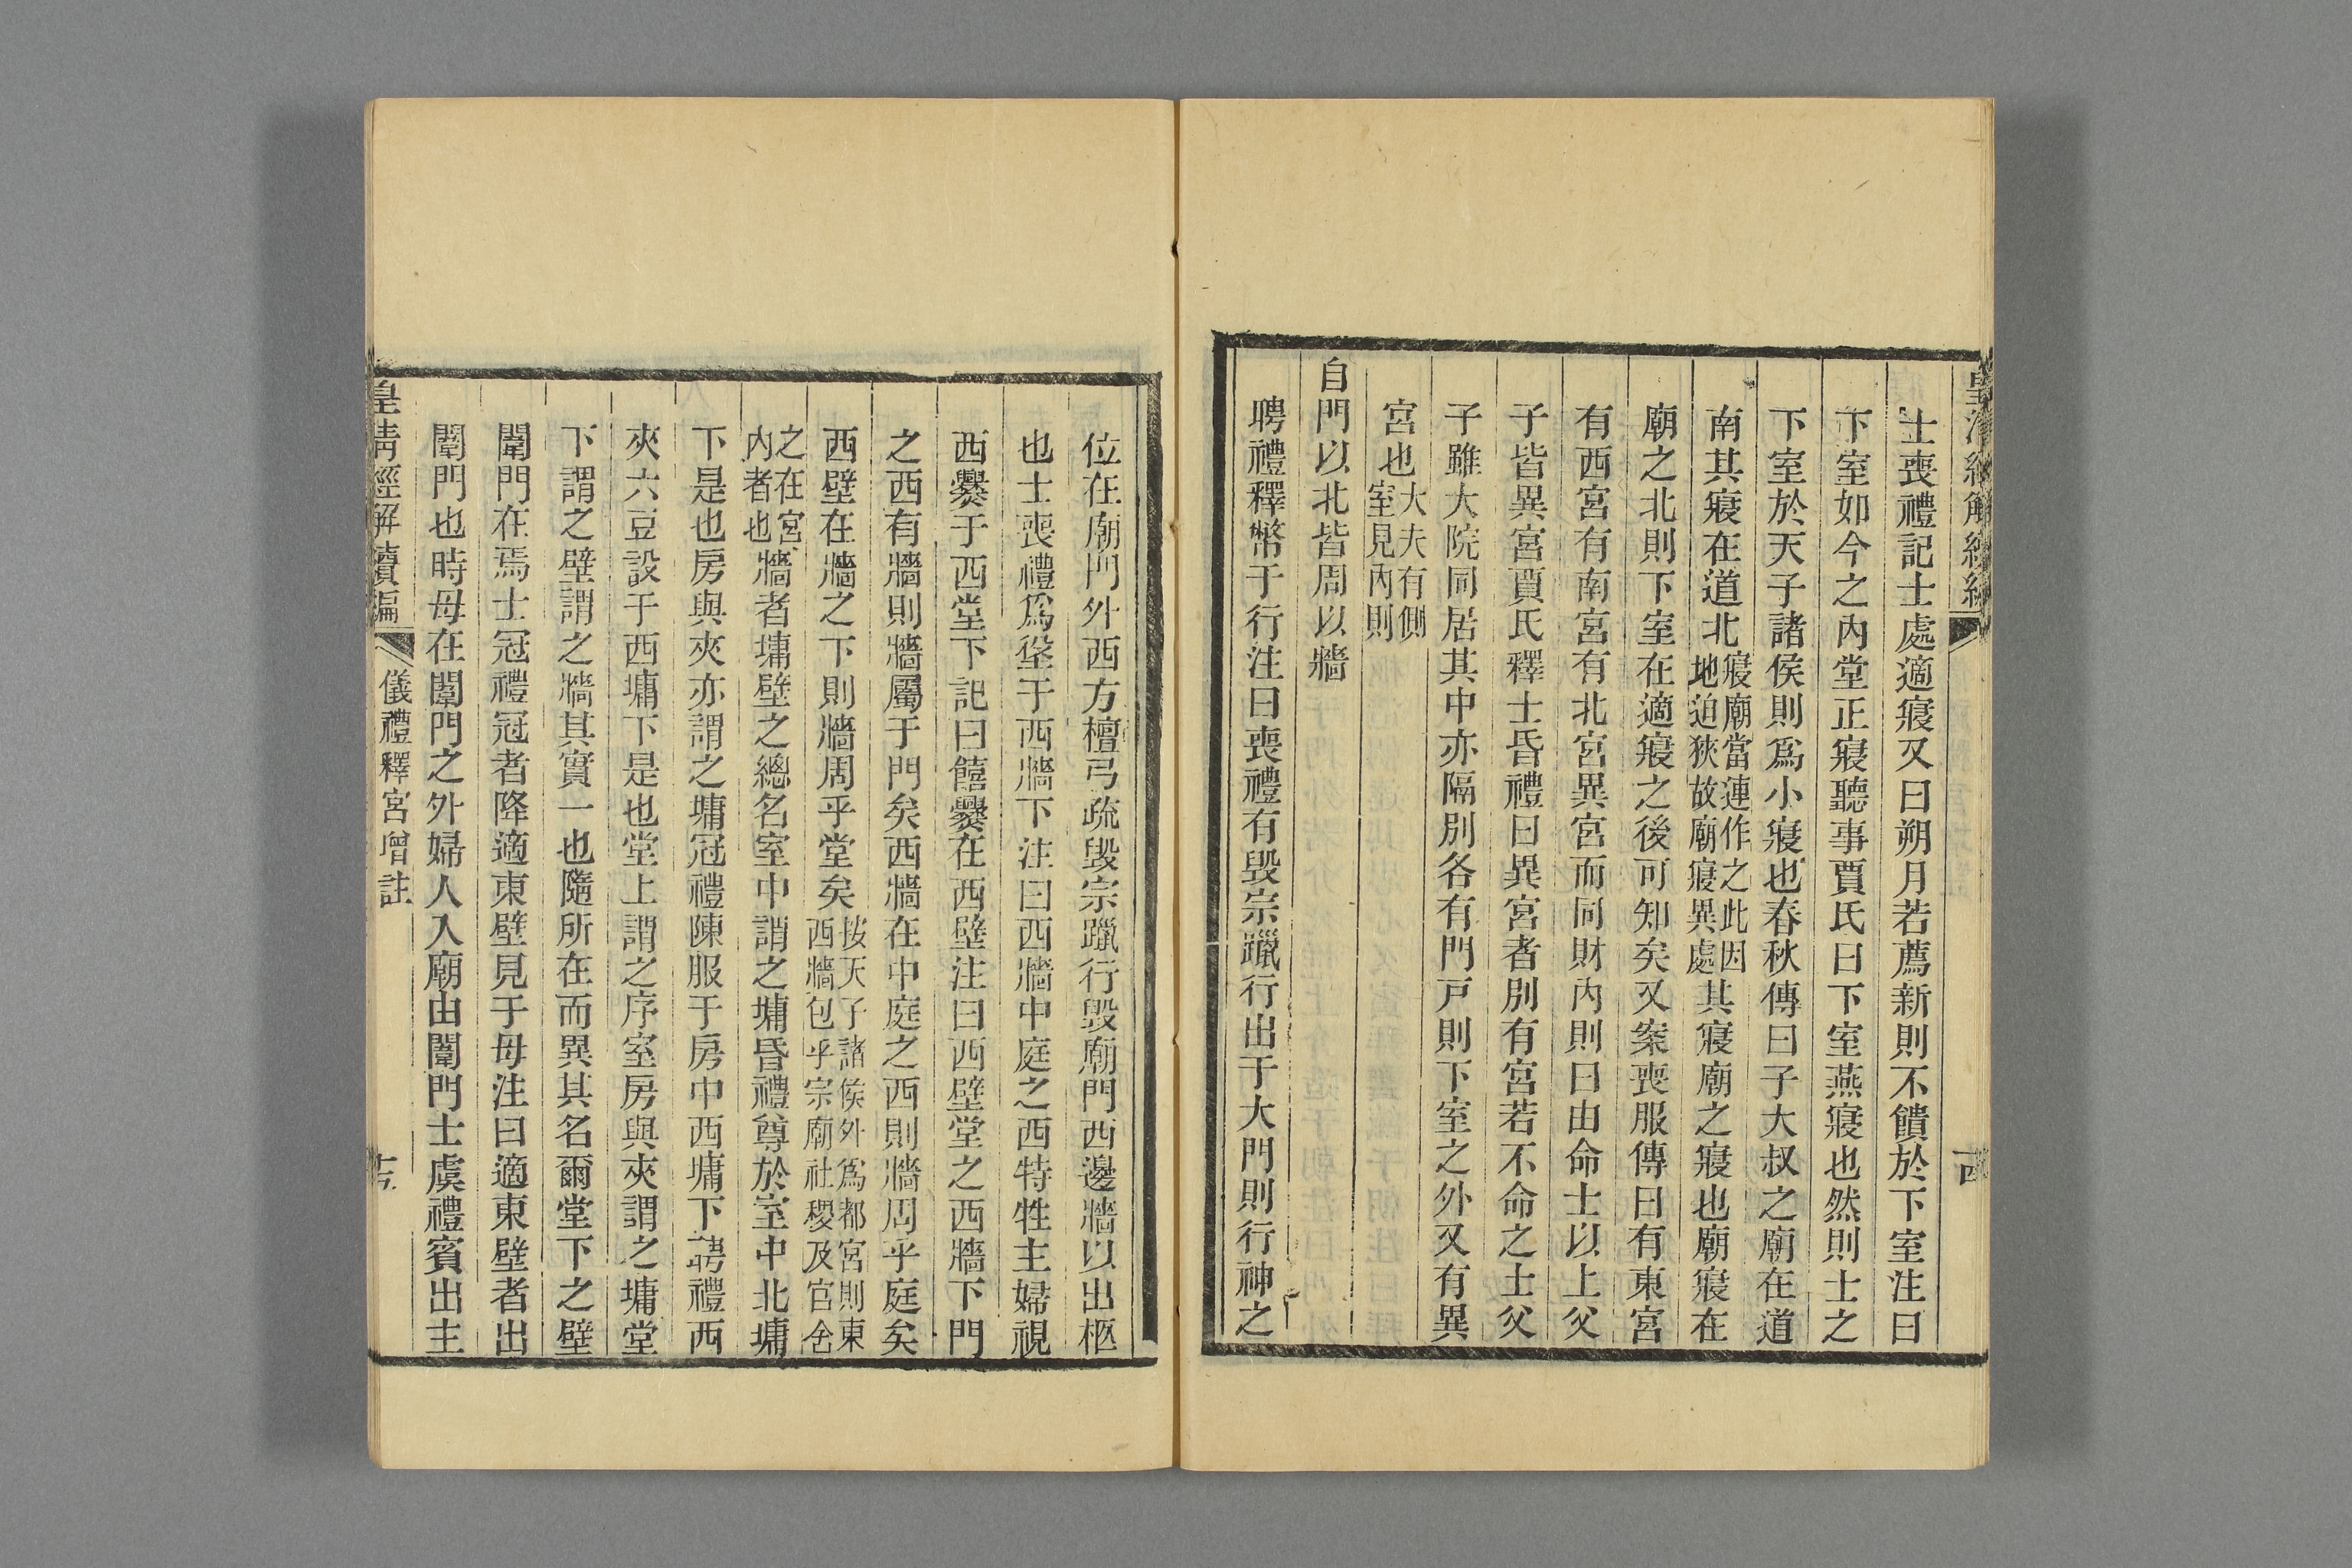 士喪禮記士處適寢又曰朔月若薦新則不饋於下室注曰
下室如今之內堂正寢聽事賈氏曰下室燕寢也然則士之
下室於天子諸侯則爲小寢也春秋傳曰子大叔之廟在道
南其寢在道北寢廟當連作之此因地迫狹故廟寢異處其寢廟之寢也廟寢在
廟之北則下室在適寢之後可知矣又案喪服傳曰有東宮
有西宮有南宮有北宮異宮而同財內則曰由命士以上父
子皆異宮賈氏釋士昏禮曰異宮者別有宮若不命之士父
子雖大院同居其中亦隔別各有門戸則下室之外又有異
宮也大夫有側室見內則
自門以北皆周以牆
聘禮釋幣于行注曰喪禮有毀宗躐行出于大門則行神之
位在廟門外西方檀弓疏毀宗躐行毀廟門西邊牆以出柩
也士喪禮爲垼于西牆下注曰西牆中庭之西特牲主婦視
西爨于西堂下記曰饎爨在西壁注曰西壁堂之西牆下門
之西有牆則牆屬于門矣西牆在中庭之西則牆周乎庭矣
西壁在牆之下則牆周乎堂矣按天子諸侯外爲都宮則東西牆包乎宗廟社稷及官舍
之在宮內者也牆者墉壁之總名室中謂之墉昏禮尊於室中北墉
下是也房與夾亦謂之墉冠禮陳服于房中西墉下聘禮西
夾六豆設于西墉下是也堂上謂之序室房與夾謂之墉堂
下謂之壁謂之牆其實一也隨所在而異其名爾堂下之壁
闈門在焉士冠禮冠者降適東壁見于母注曰適東壁者出
闈門也時母在闈門之外婦人入廟由闈門士虞禮賓出主
皇清經解續編
儀禮釋宮增註